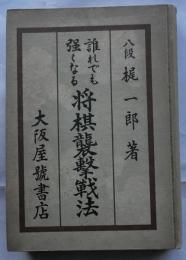 八段 梶一郎 著
誰れでも
強くなる
将棋襲撃戦法
大阪屋號書店